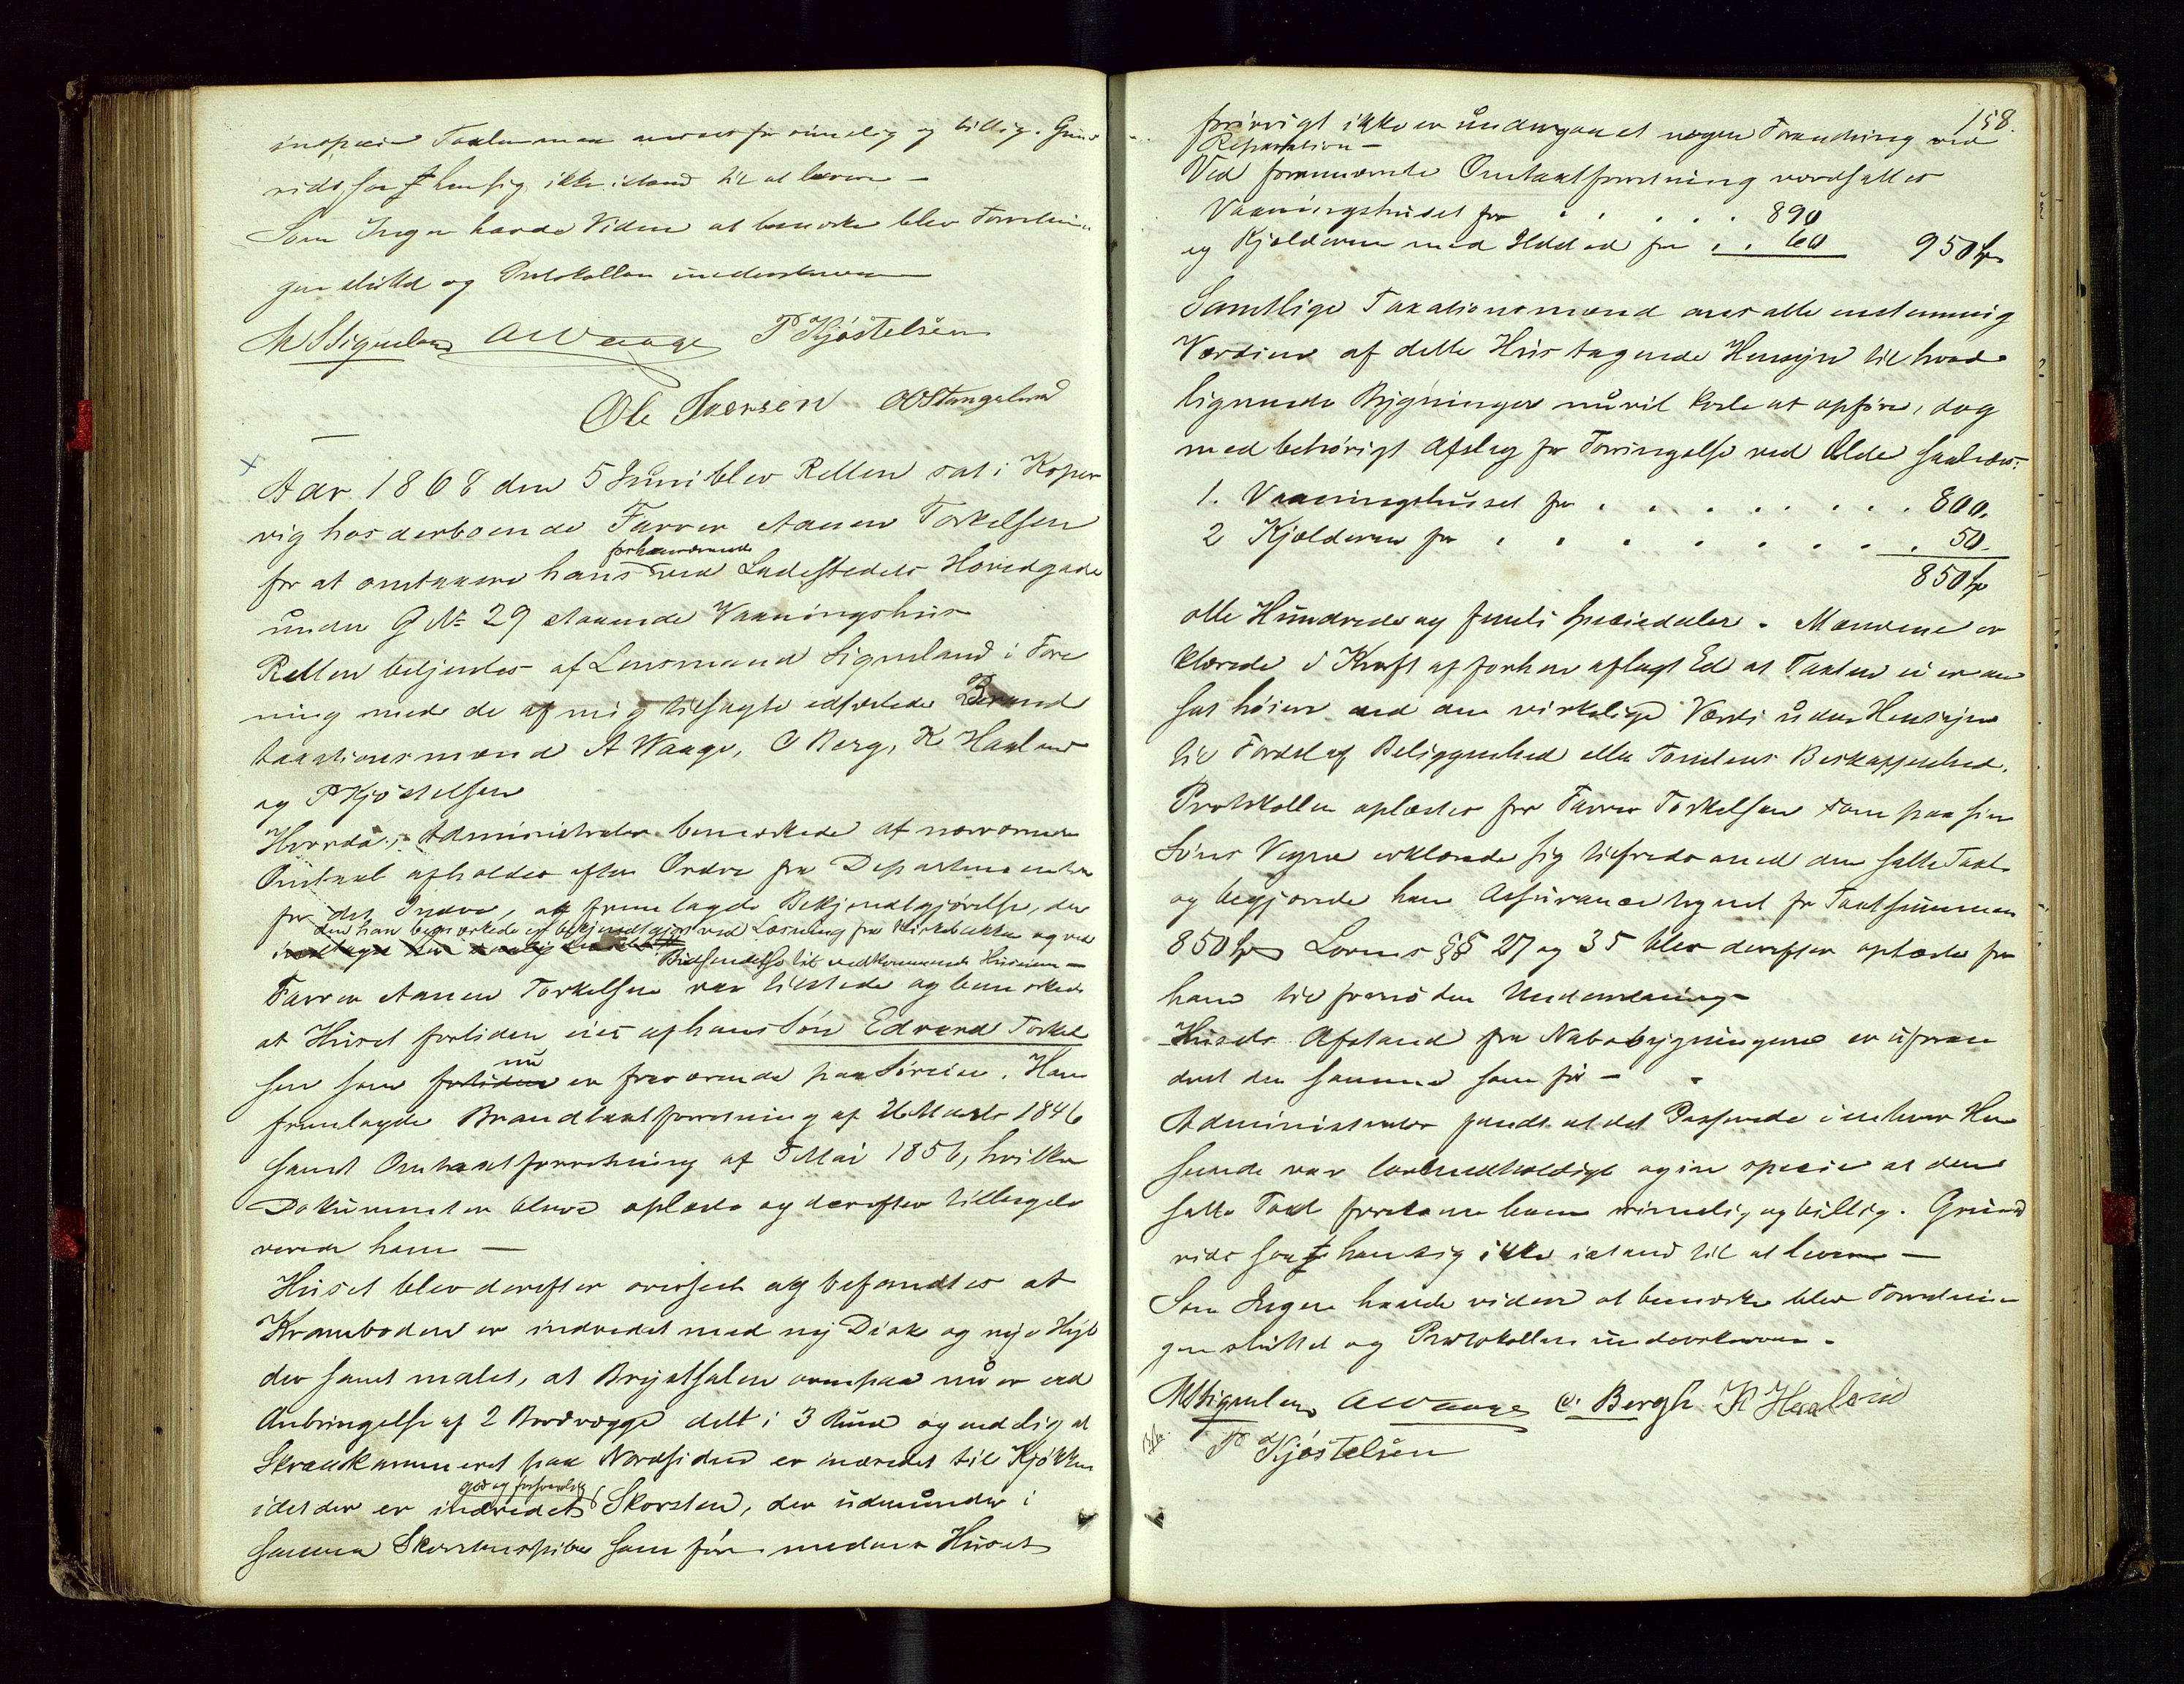 inspecie Taxten maa ansees for rimelig og billig. Grund
rids saa han sig ikke istand til at levere —
Som Ingen havde Videre at bemærke blev Forretnin
gen sluttet og Protokollen underskreven
M Sigueland AWaage P Kjøstelsen
Ole Iversen OOStangeland
—
× Aar 1868 den 5 Juni blev Retten sat i Koper
vig hos derboende Farver Aanen Torkelsen
forhenværende
for at omtaxere hans ved Ladestedets Hovedgade
under G № 29 staaende Vaaningshus
Retten betjentes af Lensmand Sigueland i Fore
ning med de af mig tilsagte edfæstede Brand
taxationsmænd A Waage, C Berg, K Haaland
og P Kjøstelsen
Hvorda: Administrator bemærkede at nærværende
Omtaxt afholdes efter Ordre fra Departementet
for det Indre, og fremlagde Bekjendtgjørelse, der
den han bemærkede er bekjendtgjort ved Læsning fra Kirkebakken og ved
Budsendelse til vedkommende Huseier —
Farver Aanen Torkelsen var tilstede og bemærkede
at Huset fortiden eies af hans Søn Edvard Torkel
nu
sen som fortiden er fraværende paa Søreise. Han
fremlagde Brandtaxtforretning af 26 Marts 1846
samt Omtaxtforretning af 5 Mai 1856, hvilke
Dokumenter bleve oplæste og derefter tilbagele
verede ham —
Huset blev derefter overseet og befandtes at
Kramboden er indredet med ny Disk og nye Hyl
der samt malet, at Brystsalen ovenpaa nu er ved
Anbringelse af 2 Bordvægge delt i 3 Rum og endelig at
Skrædkammeret paa Nordsiden er indredet til Kjøkken
god og forsvarlig
idet der er indredet Skorsten, der udmunder i
samme Skorstenspibe som før medens Huset
158.
forøvrigt ikke er undergaaet nogen Forandring ved
Reparation —
Ved fornævnte Omtaxtforretning værdsattes
Vaaningshuset for . . . . . . 890
og Kjælderen med Ildsted for . . 60 950 Spd
Samtlige Taxationsmænd ansatte enstemmig
Værdien af dette Hus tagende Hensyn til hvad
lignende Bygninger nu vil koste at opføre, dog
med behørigt Afslag for Forringelse ved Ælde saaledes:
1. Vaaningshuset for . . . . . . . . . 800.
2 Kjælderen for . . . . . . . . . 50.
850 Spd
otte Hundrede og femti Speciedaler. Mændene er
klærede i Kraft af forhen aflagt Ed at Taxten ei er an
sat høiere end den virkelige Værdi uden Hensyn
til Fordel af Beliggenhed eller Tomtens Beskaffenhed.
Protokollen oplæstes for Farver Torkelsen som paa sin
Søns Vegne erklærede sig tilfreds med den satte Taxt
og begjærede ham Assurance tegnet for Taxtsummen
850 Spd Lovens §§ 27 og 35 blev derefter oplæste for
ham til fornøden Underretning —
Husets Afstand fra Nabobygningerne er uforan
dret den samme som før —
Administrator fandt at det Passerede i enhver Hen
seende var lovmedholdigt og in specie at den
satte Taxt forekom ham rimelig og billig. Grund
rids saa han sig ikke istand til at levere —
Som Ingen havde videre at bemærke blev Forretnin
gen sluttet og Protokollen underskreven.
M Sigueland AWaage C. Bergh K Haaland
P Kjøstelsen